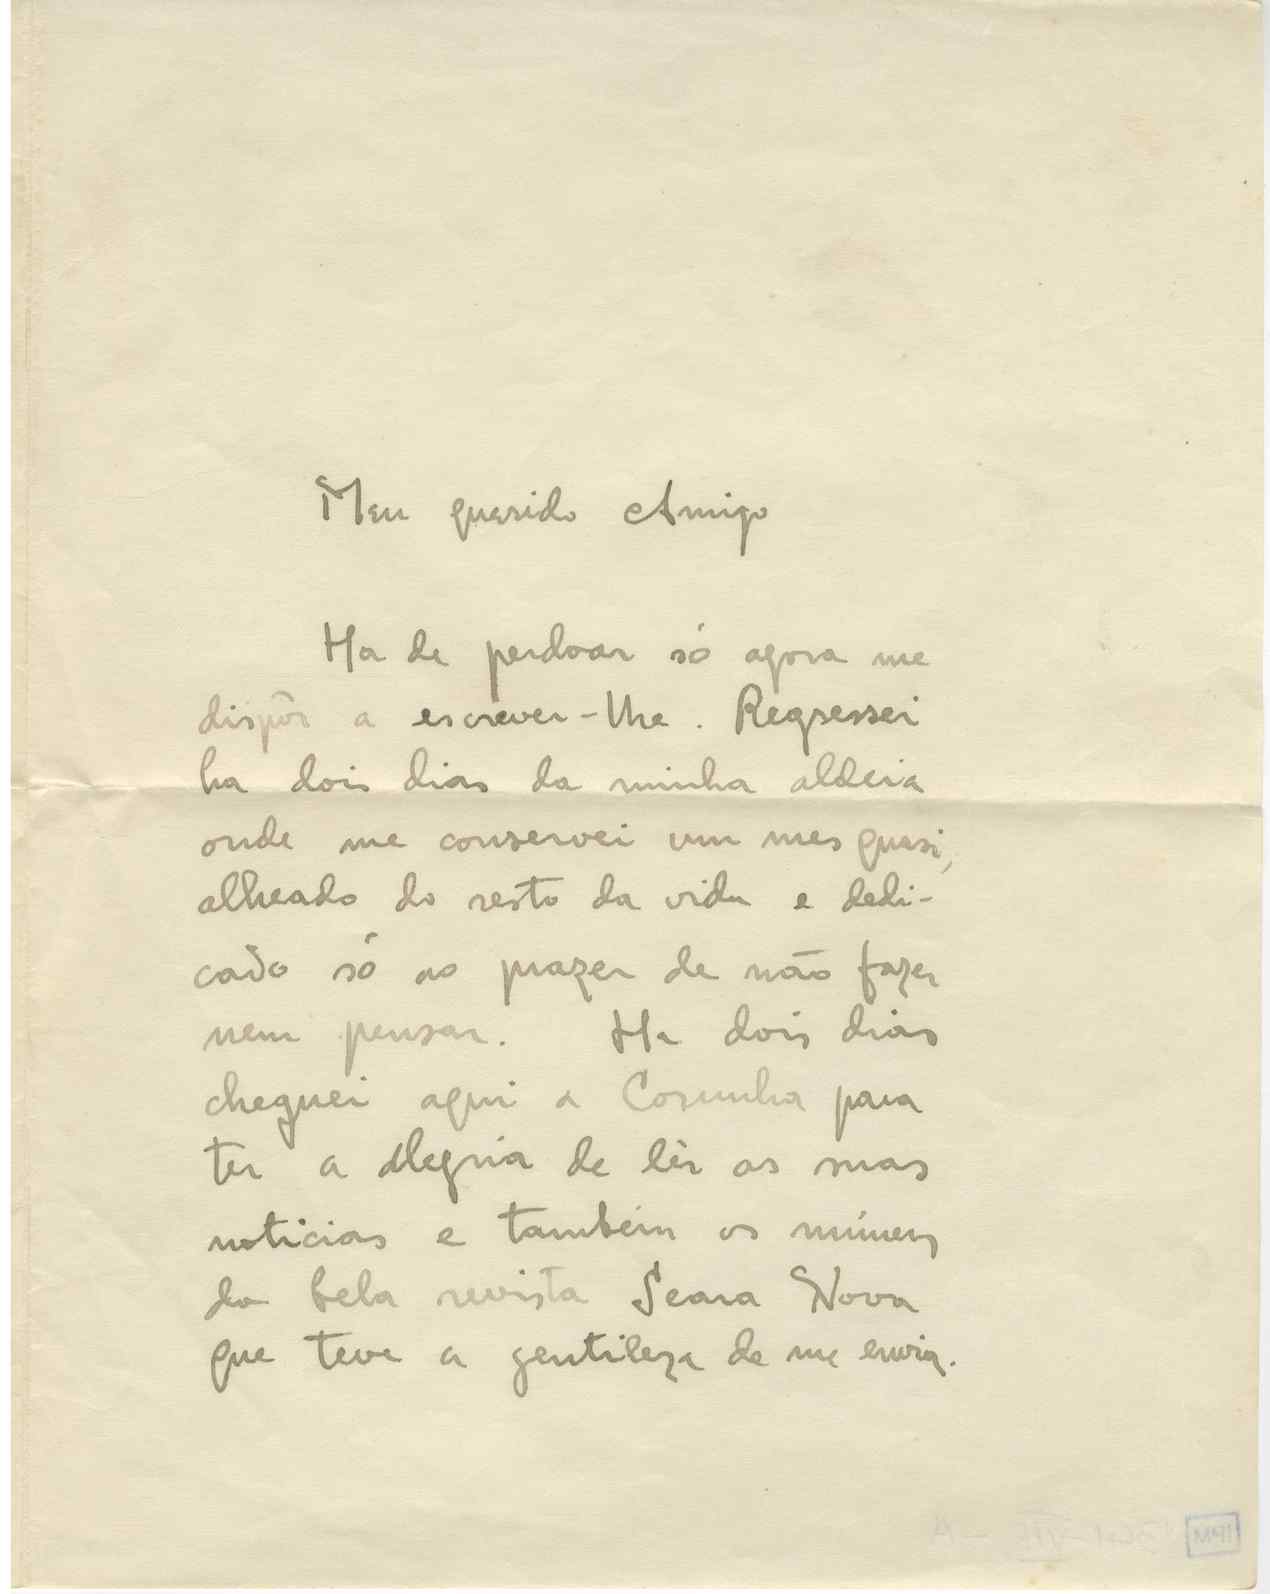 Meu querido Amigo
Ha de perdoar só agora me
dispôr a escrever-lhe. Regressei
ha dois dias da minha aldeia
onde me conservei um mes quasi,
alheado do resto da vida e dedi-
cado só ao prazer de não fazer
nem pensar. Ha dois dias
cheguei aqui a Corunha para
ter a alegria de lêr as suas
noticias e também os números
da bela revista Seara Nova
que teve a gentileza de me enviar.